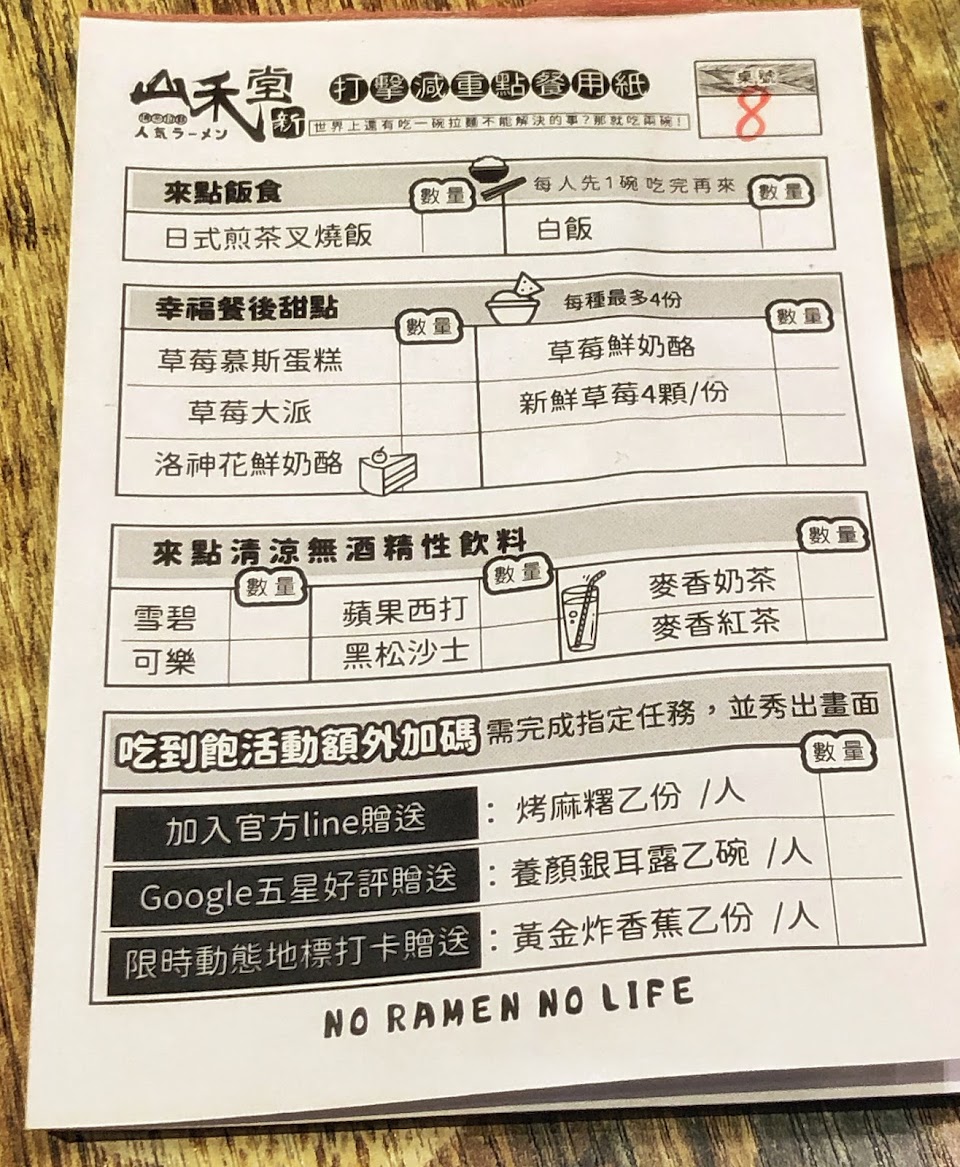 山禾堂 新
人気ラーメン
打擊減重點餐用紙
世界上還有吃一碗拉麵不能解決的事?那就吃兩碗!
桌號
8
來點飯食 數量 每人先1碗 吃完再來 數量
日式煎茶叉燒飯 白飯
幸福餐後甜點 數量 每種最多4份 數量
草莓慕斯蛋糕 草莓鮮奶酪
草莓大派 新鮮草莓4顆/份
洛神花鮮奶酪
來點清涼無酒精性飲料 數量 數量 數量
雪碧 蘋果西打 麥香奶茶
可樂 黑松沙士 麥香紅茶
吃到飽活動額外加碼 需完成指定任務,並秀出畫面
數量
加入官方line贈送 : 烤麻糬乙份 /人
Google五星好評贈送 : 養顏銀耳露乙碗 /人
限時動態地標打卡贈送 : 黃金炸香蕉乙份 /人
NO RAMEN NO LIFE